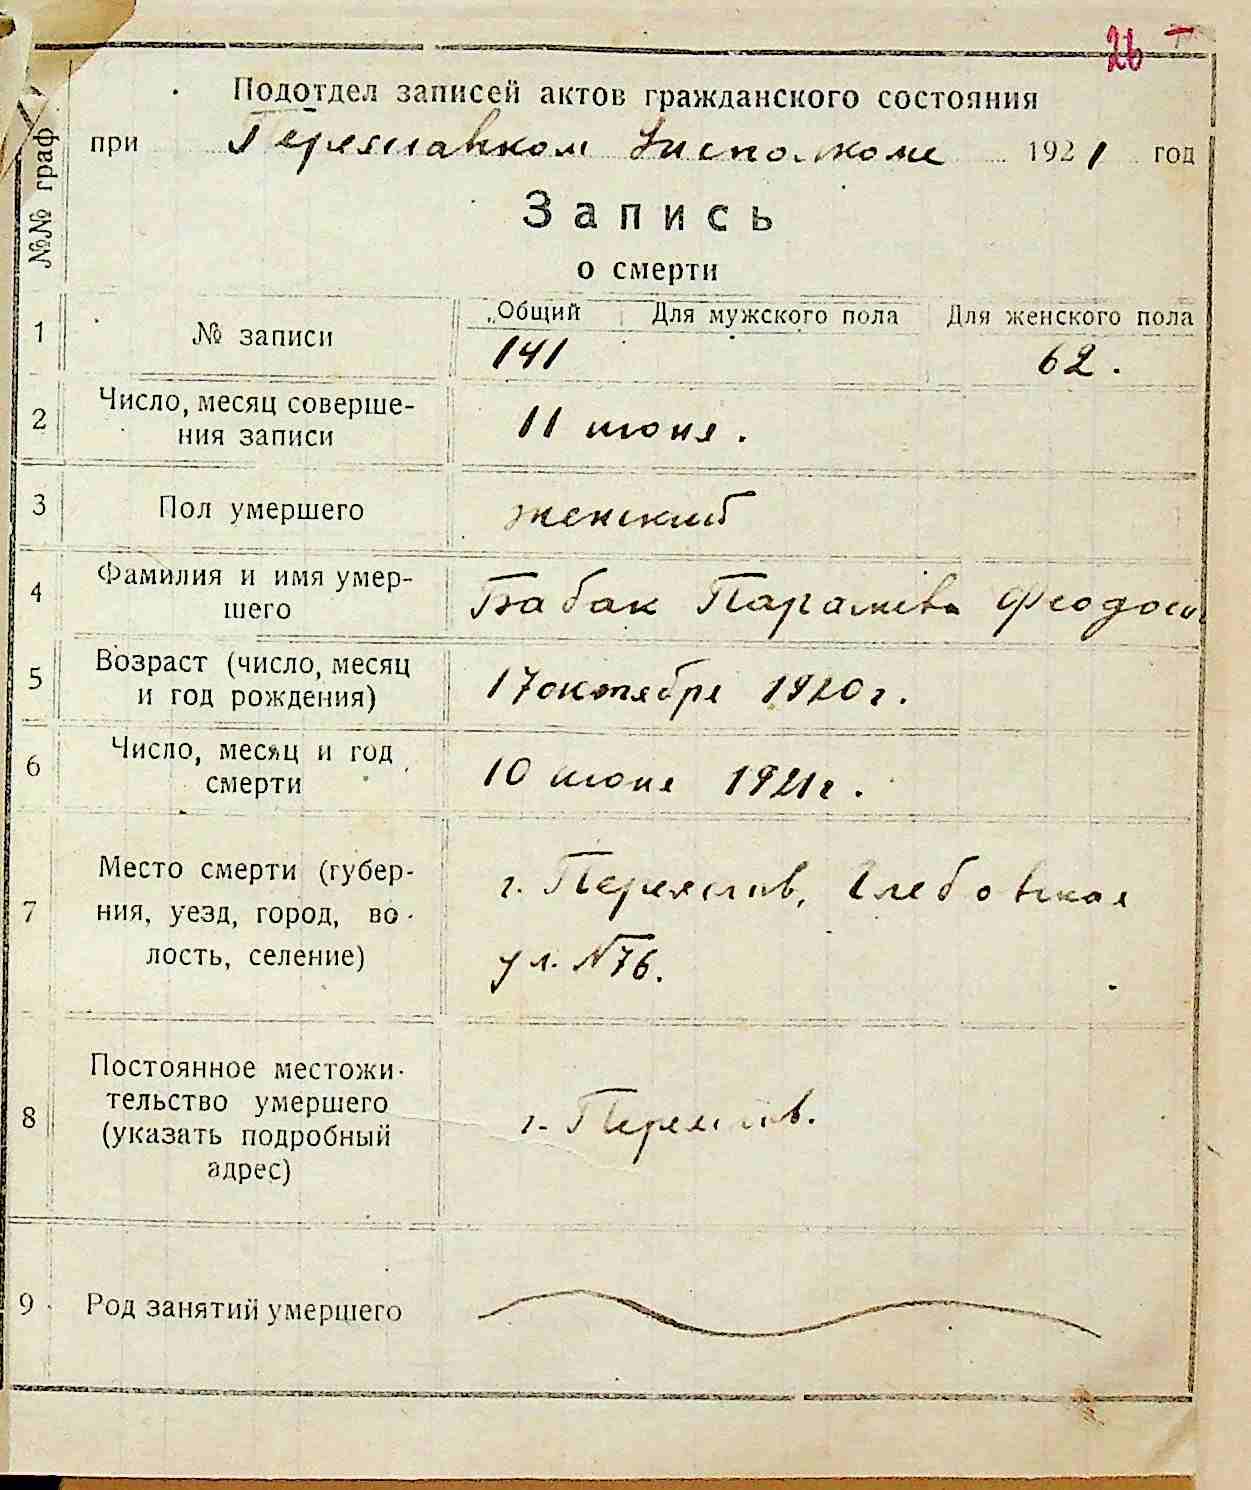 26
Подотдел записей актов гражданского состояния
при Переяславском Исполкоме 1921 год
№№ граф
Запись
о смерти
1 № записи
Общий Для мужского пола Для женского пола
141 62.
2 Число, месяц соверше-
ния записи
11 июня.
3 Пол умершего
женский
4 Фамилия и имя умер-
шего
Бабак Параскева
5 Возраст (число, месяц
и год рождения)
17 октября 1920 г.
6 Число, месяц и год
смерти
10 июня 1921 г.
7 Место смерти (губер-
ния, уезд, город, во-
лость, селение)
г. Переяслав, Глебовская
ул. № 76.
8 Постоянное местожи-
тельство умершего
(указать подробный
адрес)
г. Переяслав.
9 Род занятий умершего